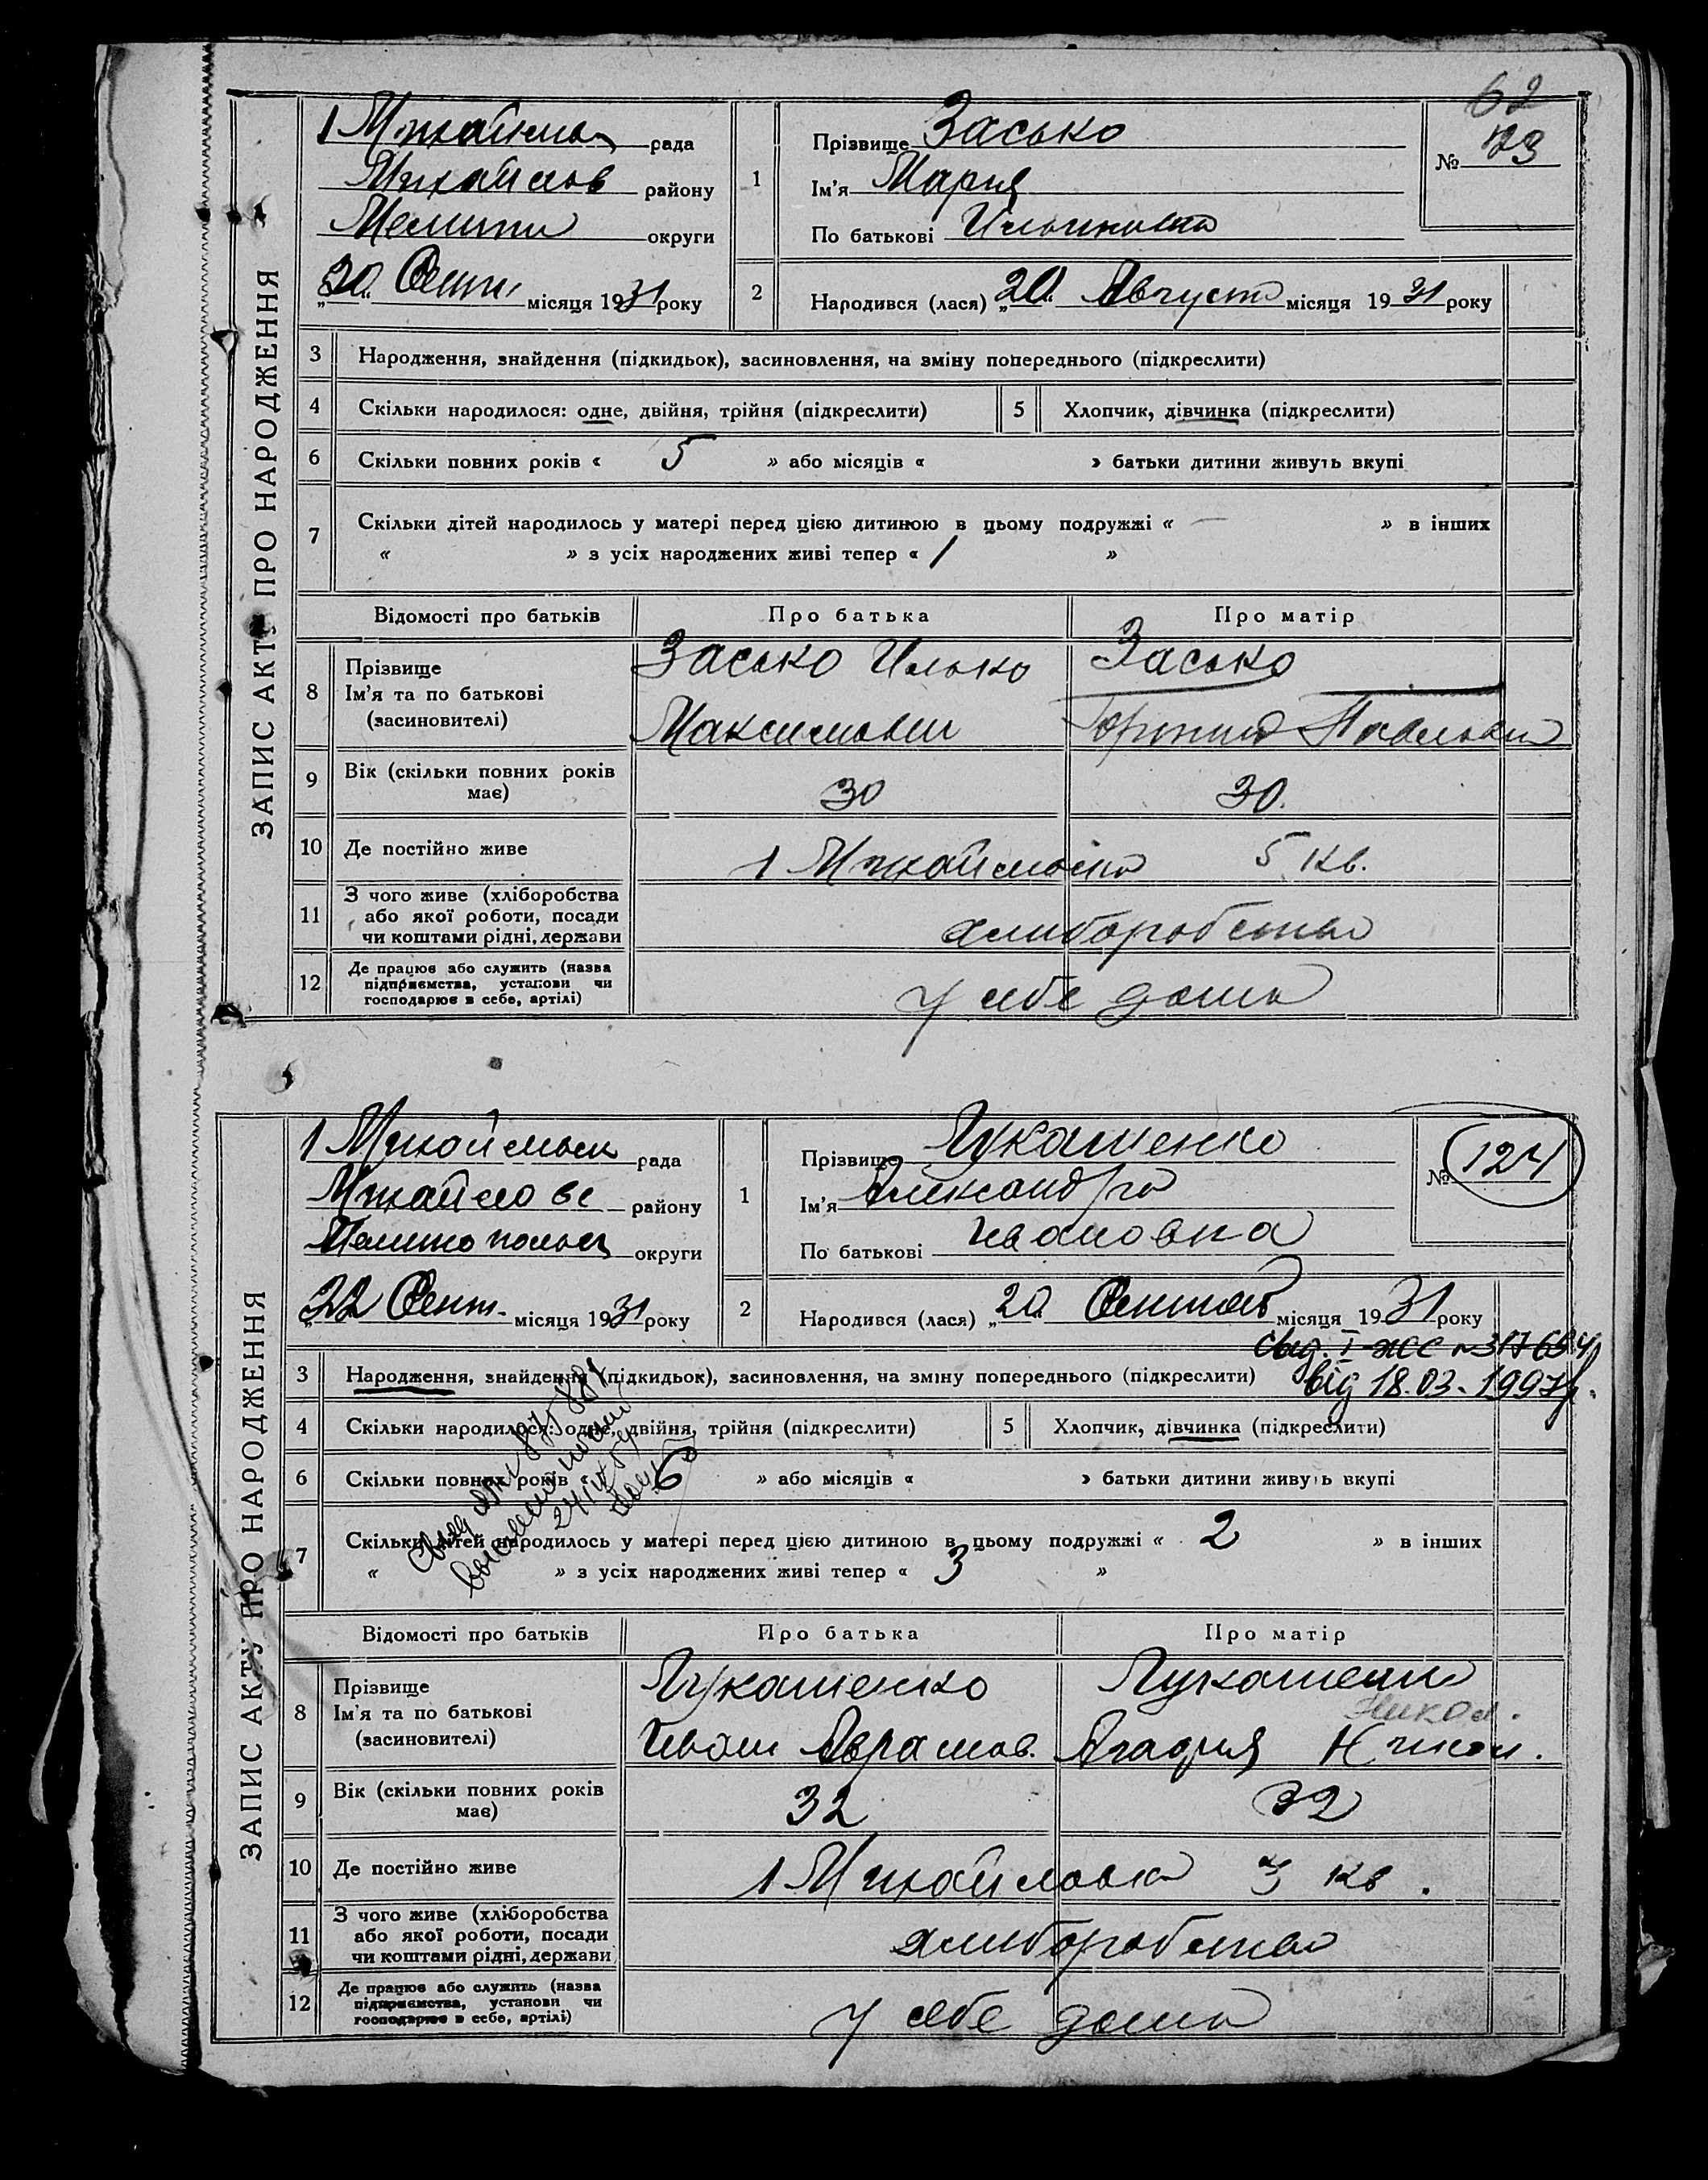 62
ЗАПИС АКТУ ПРО НАРОДЖЕННЯ
1 Михайлов рада
Михайлов району
Мелитоп округи
„20“ Сент. місяця 1931 року
1
Прізвище Засько
Ім'я Мария
По батькові Ильинична
№ 123
2
Народився (лася) „20“ Август місяця 1931 року
3 Народження, знайдення (підкидьок), засиновлення, на зміну попереднього (підкреслити)
4 Скільки народилося: одне, двійня, трійня (підкреслити)
5 Хлопчик, дівчинка (підкреслити)
6 Скільки повних років « 5 » або місяців « » батьки дитини живуть вкупі
7 Скільки дітей народилось у матері перед цією дитиною в цьому подружжі « — » в інших
« » з усіх народжених живі тепер « 1 »
Відомості про батьків Про батька Про матір
8 Прізвище
Ім'я та по батькові
(засновителі)
Засько Илько
Максимович
Засько
9 Вік (скільки повних років
має)
30 30.
10 Де постійно живе 1 Михайловка 5 кв.
11 З чого живе (хліборобства
або якої роботи, посади
чи коштами рідні, держави
хлиборобство
12 Де працює або служить (назва
підприємства, установи чи
господарює в себе, артілі)
у себе дома
ЗАПИС АКТУ ПРО НАРОДЖЕННЯ
1 Михайловск рада
Михайловс району
Мелитопольс округи
„22 Сент. місяця 1931 року
1
Прізвище Лукашенко
Ім'я Александра
По батькові Ивановна
№ 124
2
Народився (лася) „20“ Сентяб місяця 1931 року
свид. I-ЖС №317654
від 18.03.1997р.
3 Народження, знайдення (підкидьок), засиновлення, на зміну попереднього (підкреслити)
4 Скільки народилося: одне, двійня, трійня (підкреслити)
5 Хлопчик, дівчинка (підкреслити)
6 Скільки повних років « 6 » або місяців « » батьки дитини живуть вкупі
7 Скільки дітей народилось у матері перед цією дитиною в цьому подружжі « 2 » в інших
« » з усіх народжених живі тепер « 3 »
Відомості про батьків Про батька Про матір
8 Прізвище
Ім'я та по батькові
(засиновителі)
Лукашенко
Иван Аврамов.
Лукашенко
Никол.
Агафия Никол.
9 Вік (скільки повних років
має)
32 32
10 Де постійно живе 1 Михайловка 3 кв.
11 З чого живе (хліборобства
або якої роботи, посади
чи коштами рідні, держави
хлиборобство
12 Де працює або служить (назва
підприємства, установи чи
господарює в себе, артілі)
у себе дома